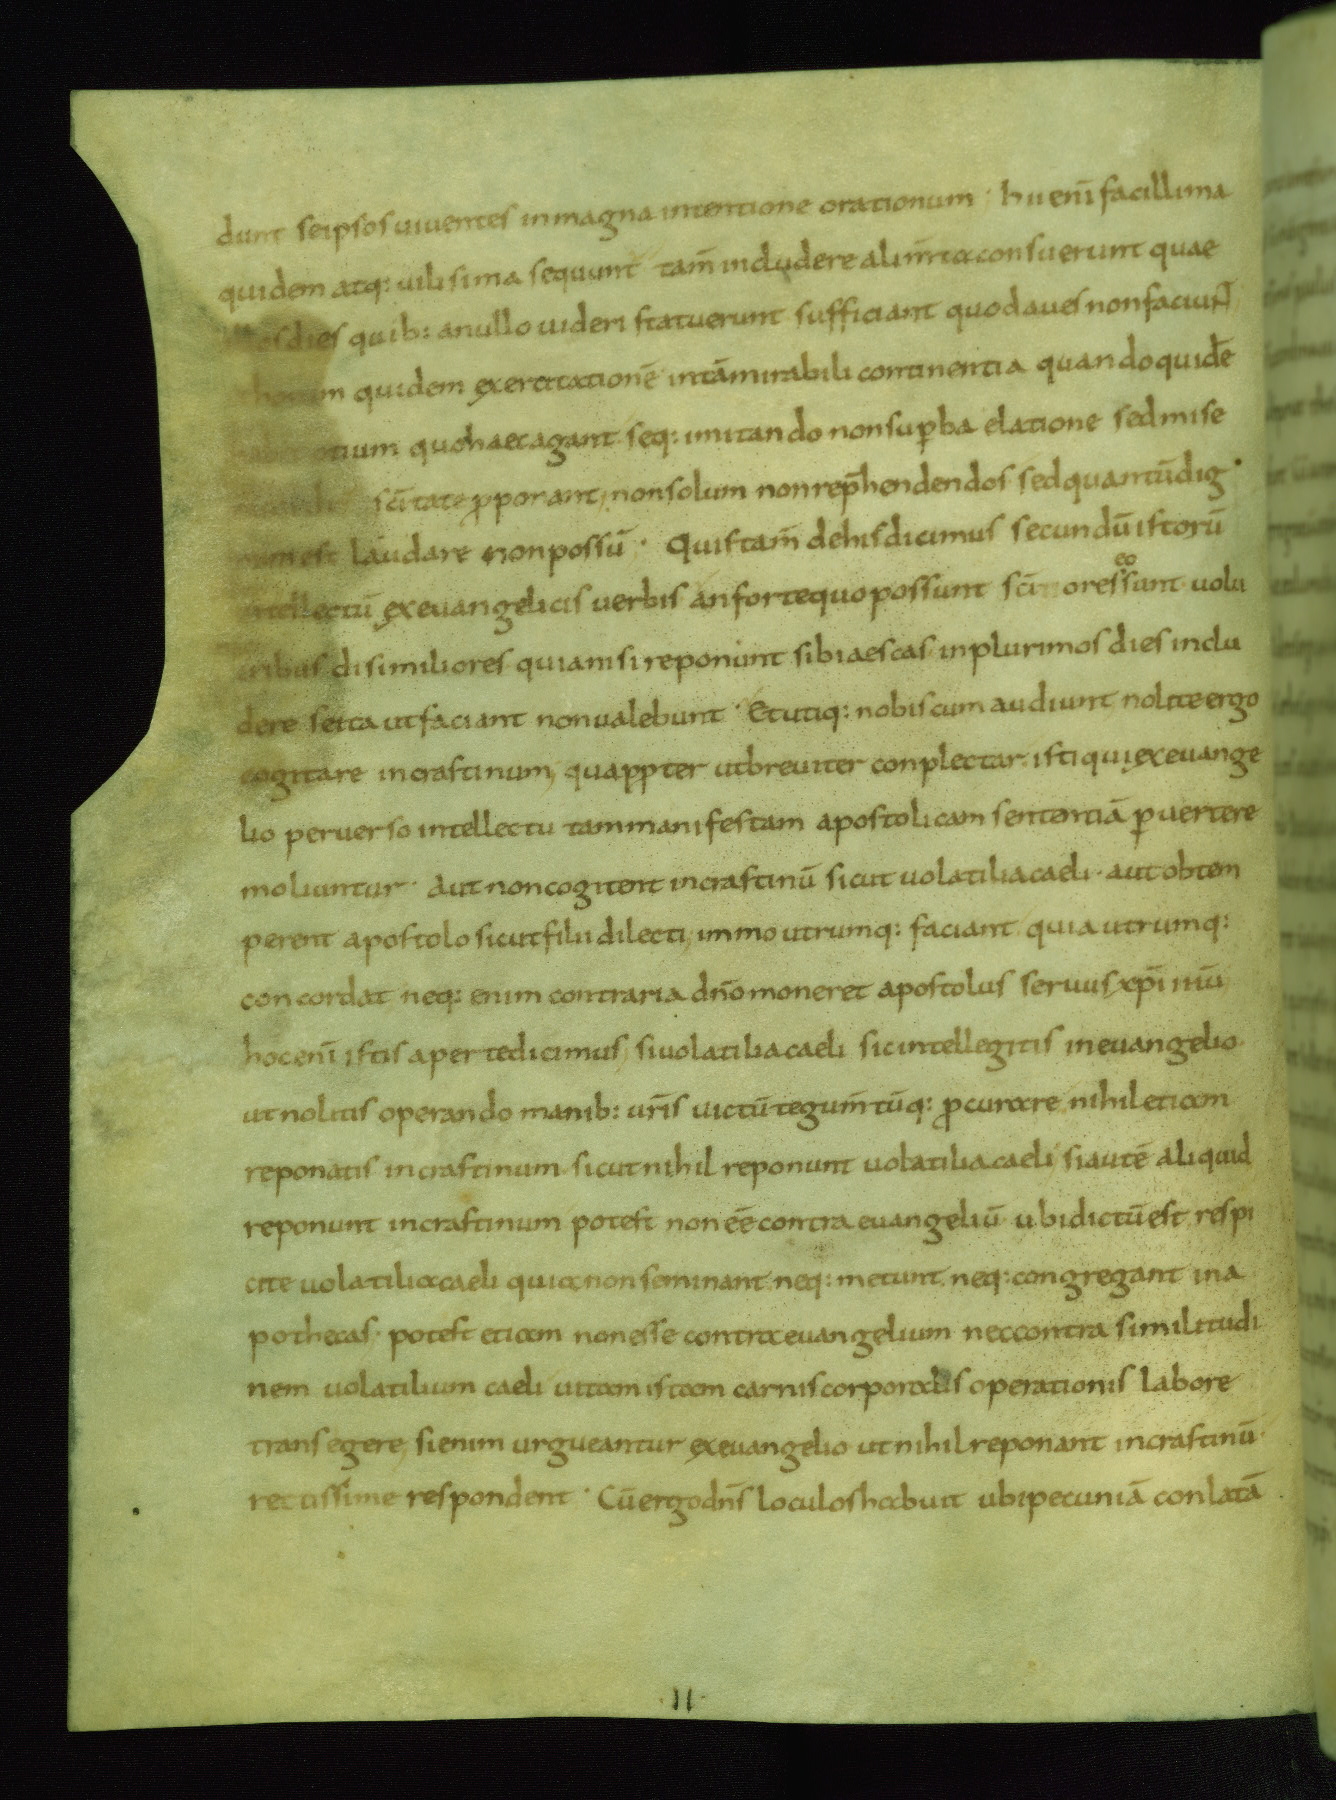 dunt seipsos uiuentes in magna intentione orationum · hii enī facillima
quidem atq: uilissima sequunt tam̄ includere alim̄ta consuerunt quae
os dies quib: a nullo uideri statuerunt sufficiant quod aues non faciunt
horum quidem exercitationē in tā mirabili continentia quando quidē
otium quo haec agant seq: imitando non sup̱ba elatione sed mise
sc̄itate p̱ponant, non solum non rep̱hendendos sed quantū dig
num est laudare non possū · Qui s tam̄ de his dicimus secundū istorū
intellectū ex euangelicis uerbis an forte quo possunt sc̄i ores eo sunt uolu
cribus disimiliores quia nisi reponunt sibi aescas in plurimos dies inclu
dere se ita ut faciant non ualebunt · Et utiq: nobiscum audiunt nolite ergo
cogitare in crastinum, quapp̱ter ut breuiter conplectar isti qui ex euange
lio peruerso intellectu tam manifestam apostolicam sententiā p̱uertere
moliuntur · Aut non cogitent in crastinū sicut uolatilia caeli · aut obtem
perent apostolo sicut filii dilecti, immo utrumq: faciant quia utrumq:
concordat neq: enim contraria dn̄o moneret apostolus seruus xp̄i ih̄ū
hoc enī istis aperte dicimus, si uolatilia caeli sic intellegitis in euangelio
ut nolitis operando manib: ur̄is uictū tegum̄tūq: p̱curare nihil etiam
reponatis in crastinum sicut nihil reponunt uolatilia caeli, si autē aliquid
reponunt in crastinum potest non eē contra euangeliū ubi dictū est respi
cite uolatilia caeli quia non seminant neq: metunt neq: congregant in a
pothecas · potest etiam non esse contra euangelium nec contra similitudi
nem uolatilium caeli uitam istam carnis corporalis operationis labore
transegere, si enim urgueantur ex euangelio ut nihil reponant in crastinū
rectissime respondent · Cū ergo dn̄s loculos habuit ubi pecuniā conlatā
II